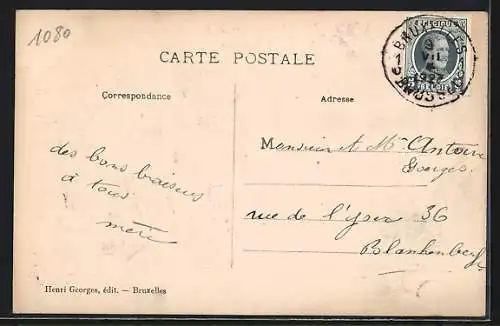 1080
CARTE POSTALE
BRUXELLES
9
VII
1927
BRUSSEL
BELGIË
Correspondance
Adresse
Monsieur et Mme Antoine
Georges
des bons baisers
à tous
rue de l'Yser 36
Blankenberghe
Henri Georges, édit. — Bruxelles